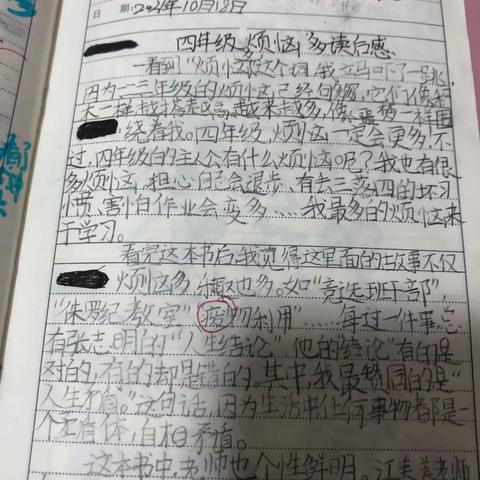 日 期: 2021年10月18日
四年级 烦恼多读后感
一看到“烦恼”这个词,我立马吓了一跳,
因为一二三年级的烦恼已经
一样越
绕着我。四年级,烦恼一定会更多,不
过,四年级的主人公有什么烦恼呢?我也有很
多烦恼,担心自己会退步、有丢三落四的坏习
惯、害怕作业会变多……我最多的烦恼来
于学习。
看完这本书后,我觉得这里面的故事不仅
烦恼多 乐趣也多。如“竞选班干部”,
“侏罗纪教室”“废物利用”……每过一件事总
有张志明的“人生结论”他的“结论”有的是
对的,有的却是错的。其中,我最赞同的是“
人生矛盾。”这句话,因为生活中任何事物都是一
个矛盾体,自相矛盾。
这本书中老师也个性鲜明。江美美老师